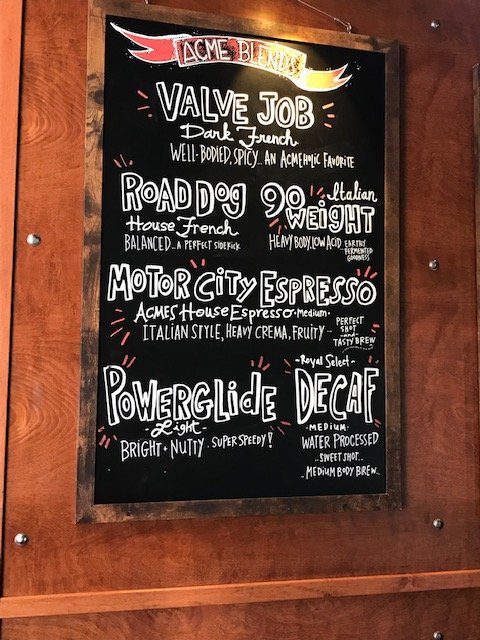 ACME BLENDS
VALVE JOB
Dark French
WELL-BODIED, SPICY.. AN ACMEHOLIC FAVORITE
ROAD DOG
House French
BALANCED...A PERFECT SIDEKICK
90 Italian
WEIGHT
HEAVY BODY, LOW ACID
EARTHY
FERMENTED
GOODNESS
MOTOR CITY ESPRESSO
ACMES HOUSE ESPRESSO • MEDIUM •
ITALIAN STYLE, HEAVY CREMA, FRUITY -
PERFECT
SHOT
-and-
TASTY BREW
POWERGLIDE
- Light -
BRIGHT + NUTTY .. SUPER SPEEDY!
- Royal Select -
DECAF
- MEDIUM -
WATER PROCESSED
..SWEET SHOT..
..MEDIUM BODY BREW..